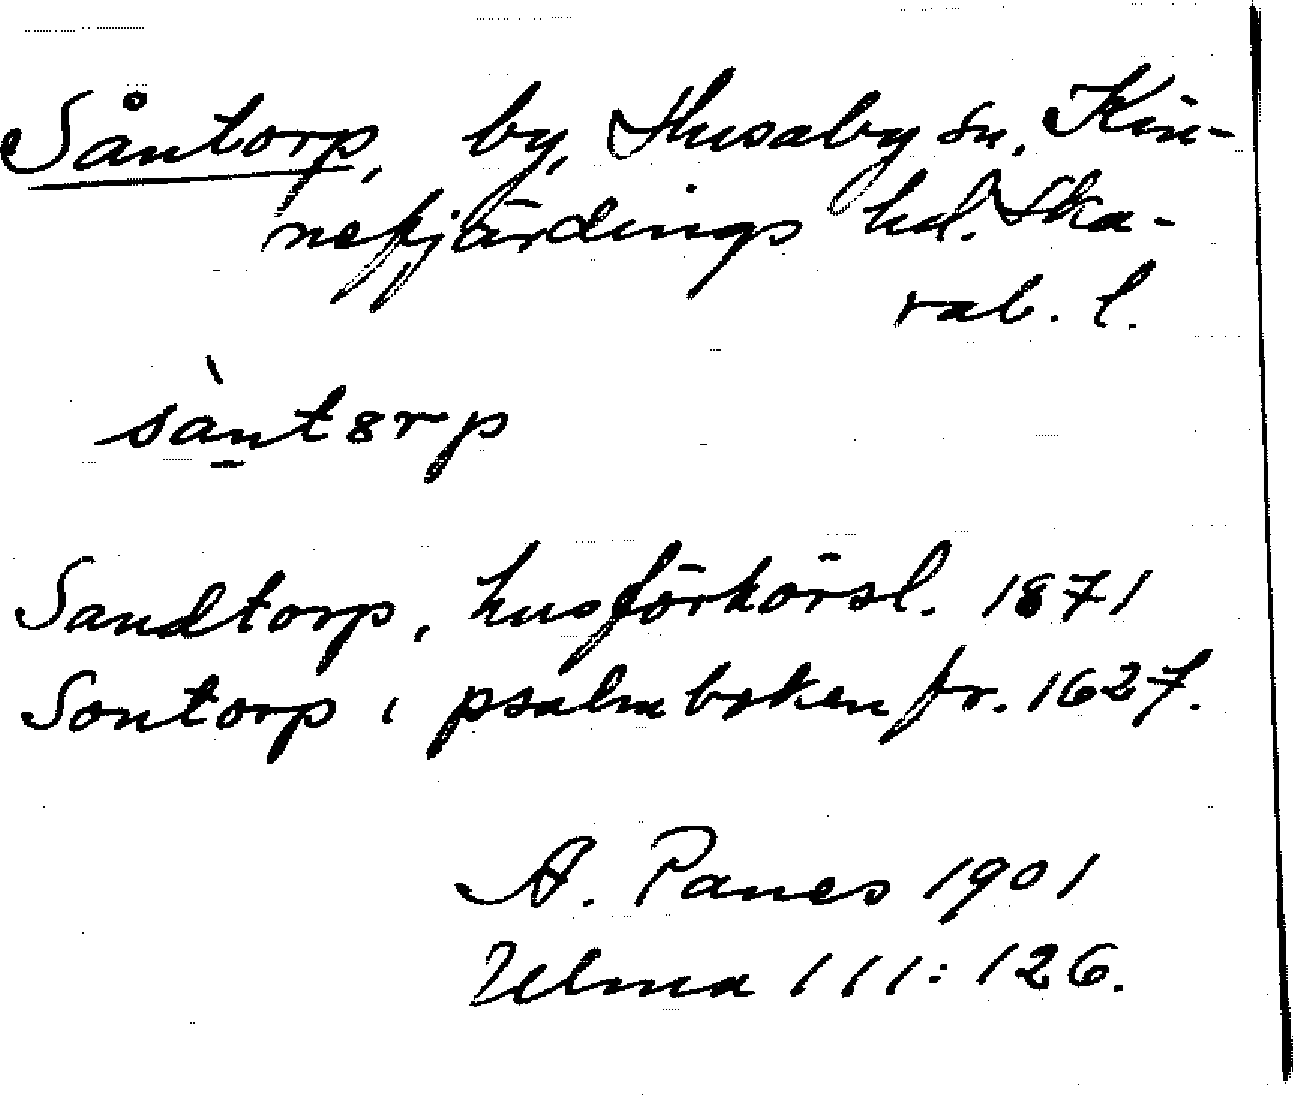 Såntorp, by, Husaby sn, Kin-
nefjärdings hd. Ska-
rab. l.
sàntȣrp
Sandtorp, husförhörsl. 1871
Sontorp i psalmboken fr. 1627.
A. Panes 1901
Ulma 111:126.